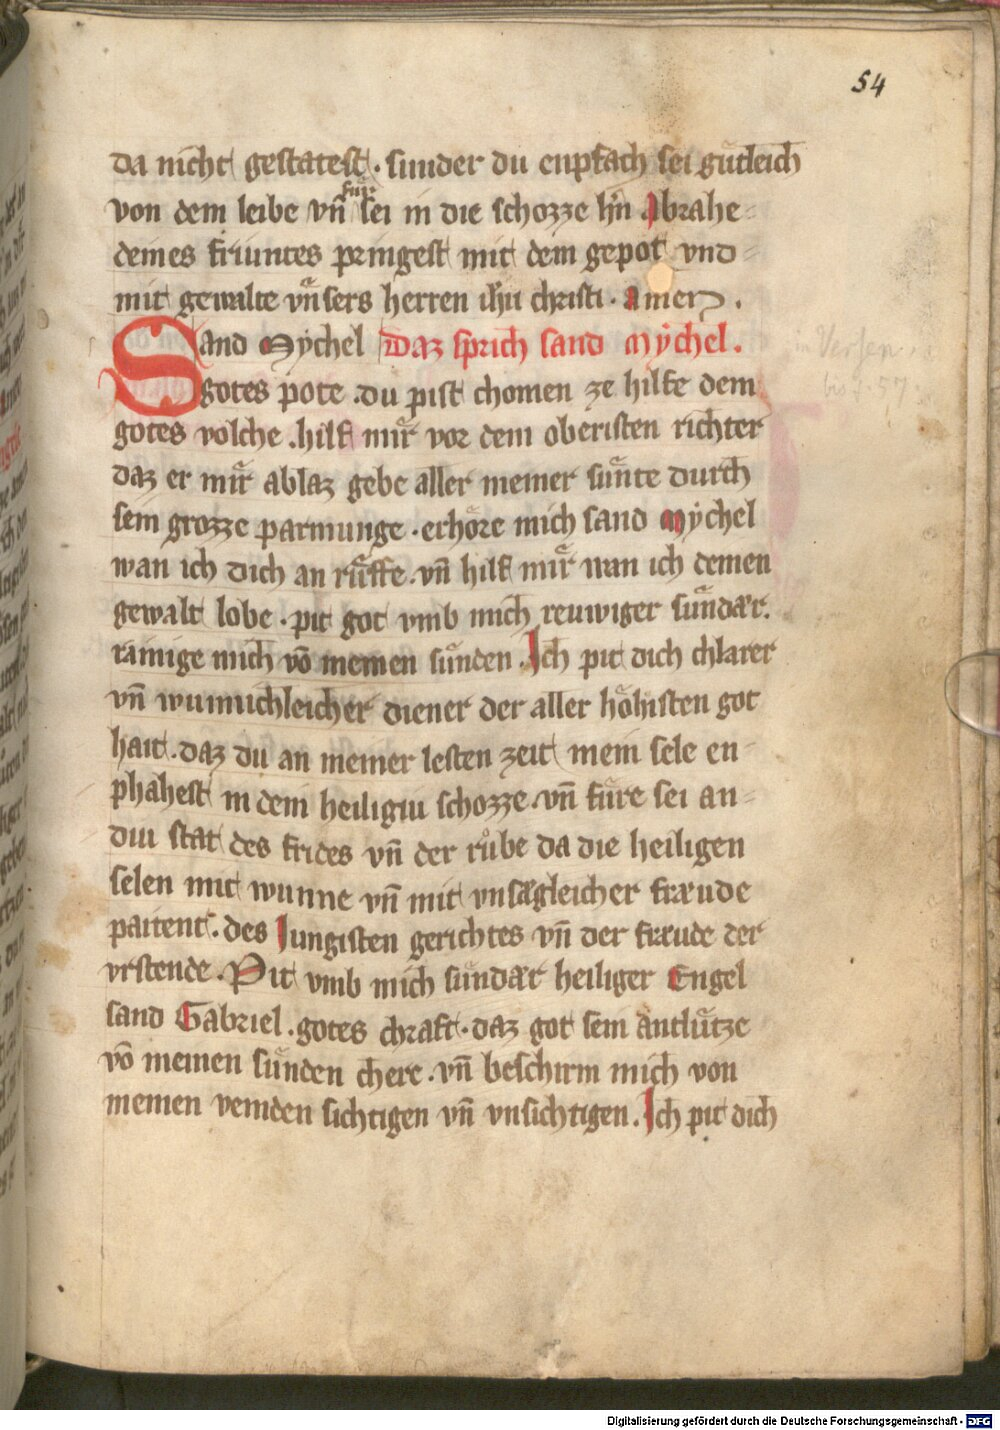 54
da nicht gestatest · sunder du enpfach sei guͤtleich
von dem leibe vñ fuͤr sei in die schozze hˀn Abrahe
deines friuntes pringest mit dem gepot vnd
mit gewalte vnsers herren ihu christi · Amen .
Sand Mẏchel Daz sprich sand mẏchel .
gotes pote . du pist chomen ze hilfe dem
gotes volche . hilf mir vor dem oberisten richter
daz er mir ablaz gebe aller meiner sunte durch
sein grozze parmunge . erhoͤre mich sand mẏchel
wan ich dich an ruͤffe . vñ hilf mir wan ich deinen
gewalt lobe . pit got vmb mich reuwiger suͤndær .
rainige mich võ meinen suͤnden . Ich pit dich chlarer
vñ wunnichleicher diener der aller hoͤhisten got
hait . daz du an meiner lesten zeit mein sele en
phahest in dein heiligiu schozze . vñ fuͤre sei an
diu stat des frides vñ der ruͦbe da die heiligen
selen mit wunne vñ mit vnsægleicher fræude
paitent . des Jungisten gerichtes vñ der fræude der
vrstende . Pit vmb mich suͤndær heiliger Engel
sand Gabriel . gotes chraft . daz got sein antluͤtze
võ meinen suͤnden chere . vñ beschirm mich von
meinen veinden sichtigen vñ vnsichtigen . Ich pit dich
in Versen
bis f. 57
Digitalisierung gefördert durch die Deutsche Forschungsgemeinschaft - DFG